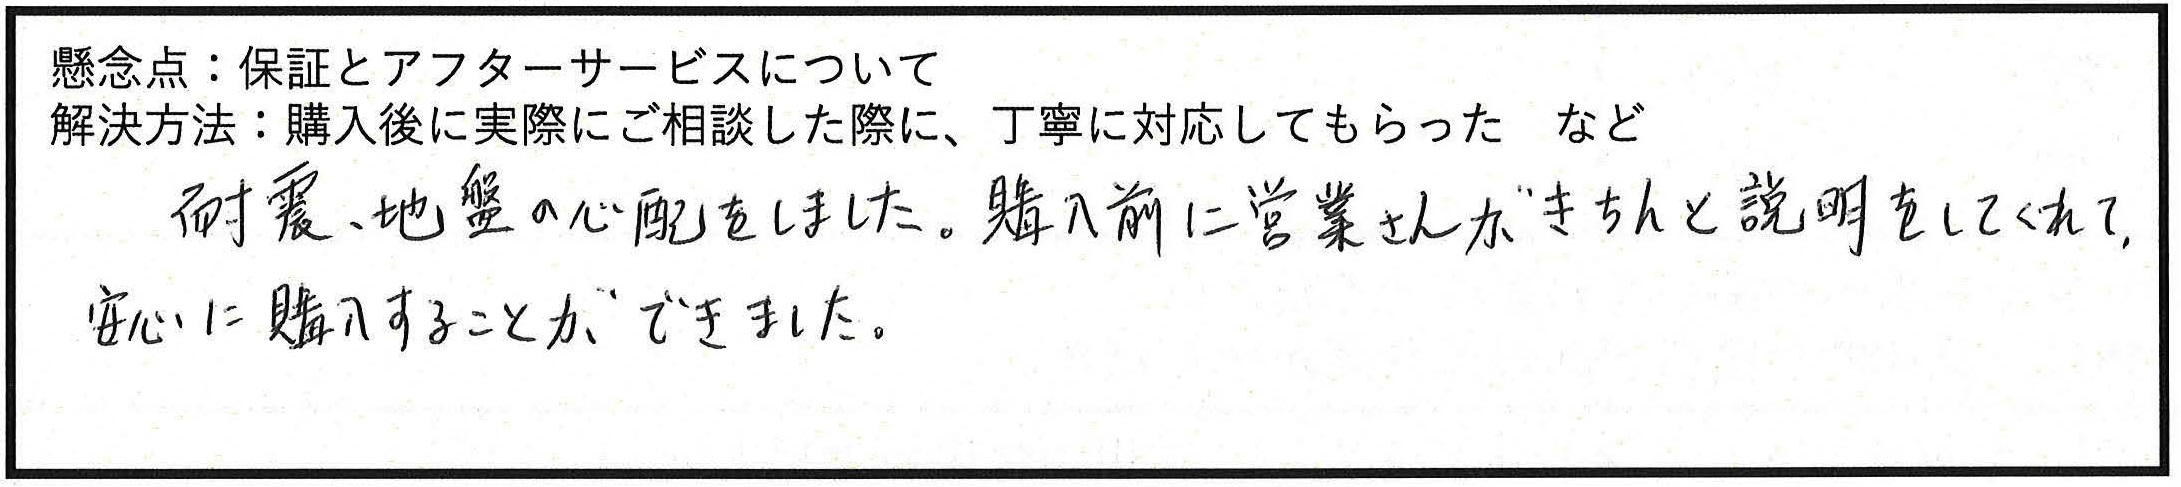 懸念点：保証とアフターサービスについて
解決方法：購入後に実際にご相談した際に、丁寧に対応してもらった　など
耐震、地盤の心配をしました。購入前に営業さんがきちんと説明をしてくれて、
安心に購入することができました。